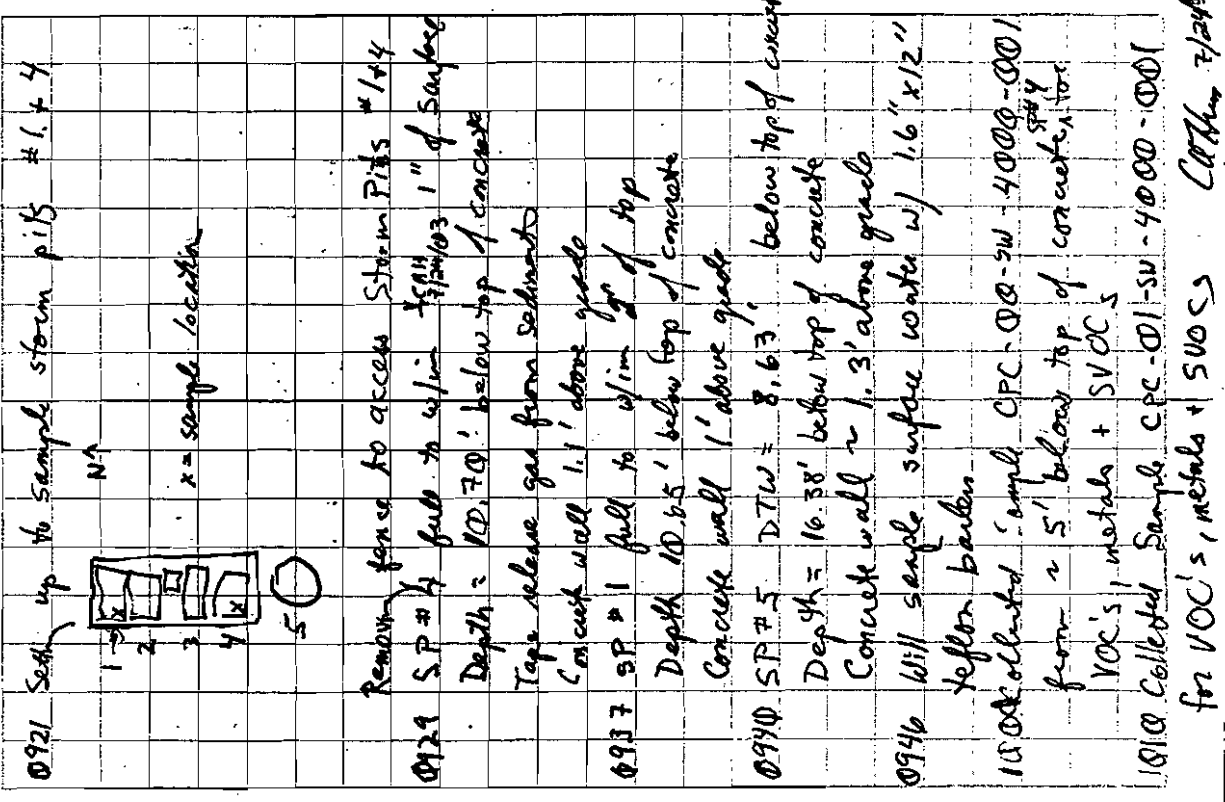 0921 Setting up to sample storm pits #1 + 4
N↑
1
2
3
4
5
x = sample location
Removing fence to access Storm Pits #1+4
0929 SP #4 full to w/in 1" of surface
CAH 7/24/03
Depth = 10.70' below top of concrete
Tape release gas from sediment
Concrete wall 1.1' above grade
0937 SP #1 full to w/in of top
Depth 10.65' below top of concrete
Concrete wall 1' above grade
0940 SP #5 DTW = 8.63' below top of concrete
Depth = 16.38' below top of concrete
Concrete wall ~ 1.3' above grade
0946 Will sample surface water w/ 1.6" x 12"
teflon bailer
1000 Collected sample CPC-00-SW-4000-001
from ~ 5' below top of concrete, SP#4 for
VOC's, metals + SVOCs
1010 Collected Sample CPC-01-SW-4000-001
for VOC's, metals + SVOCs
7/24/03